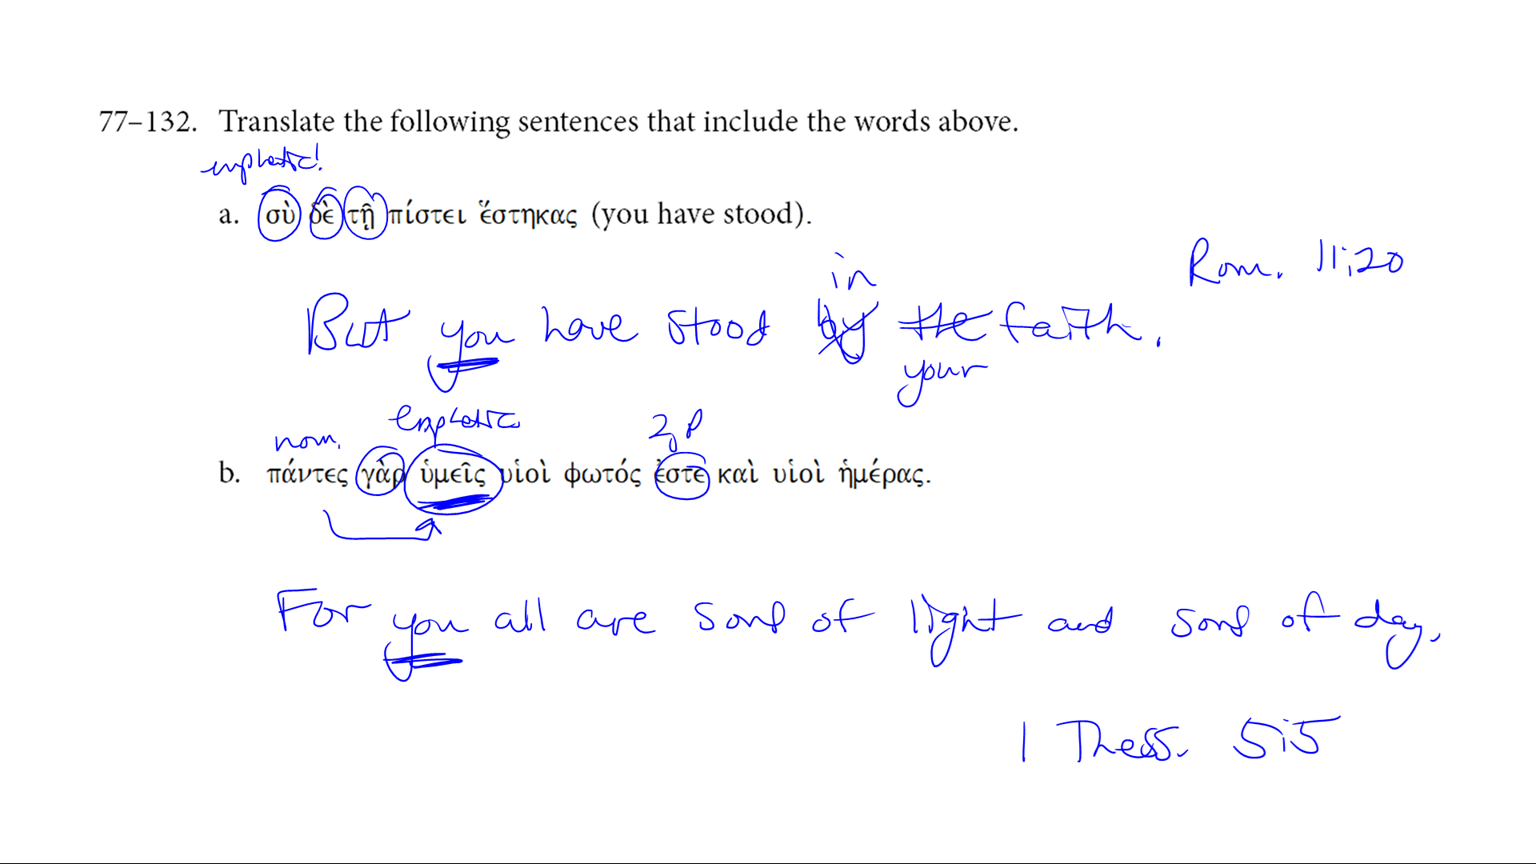 77–132. Translate the following sentences that include the words above.
emphatic!
a. σὺ δὲ τῇ πίστει ἕστηκας (you have stood).
Rom. 11:20
in
But you have stood by the faith.
your
emphatic
nom. 2 p
b. πάντες γὰρ ὑμεῖς υἱοὶ φωτός ἐστε καὶ υἱοὶ ἡμέρας.
For you all are sons of light and sons of day.
1 Thess. 5:5